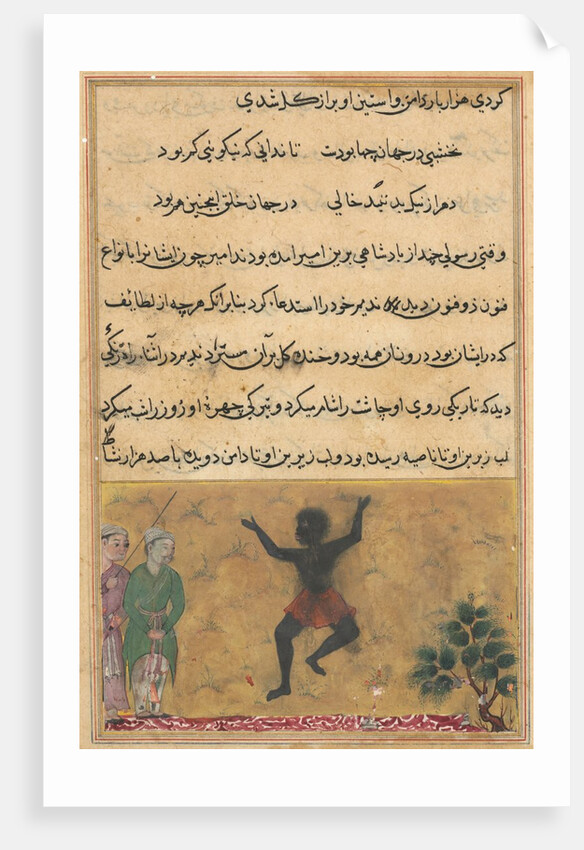 کردي هزار بار دامن و استین او براز کل شدي
نخشبي در جهان چها بودت تا نداني که نیکوئي کم بود
دهر از نیک بد نیند خالي در جهان خلق اینچنین هم بود
وقتي رسولي چند از بادشاهي برین امیر امده بودند امیر چون ایشانرا با نواع
فنون ذو فنون دید ندیم خود را استدعا کرد بنابرانک هرچه از لطائف
که در ایشان بود درونان همه بود و خنده کل بران در اثناء راه زنکي
دید که تاریکي روي او چاشت را شام میکرد و تیرکي چهره او روز را شب میکرد
لب زبرین او تا ناصیه رسیده بود و لب زیرین او تا دامن دویده با صد هزار نشاط